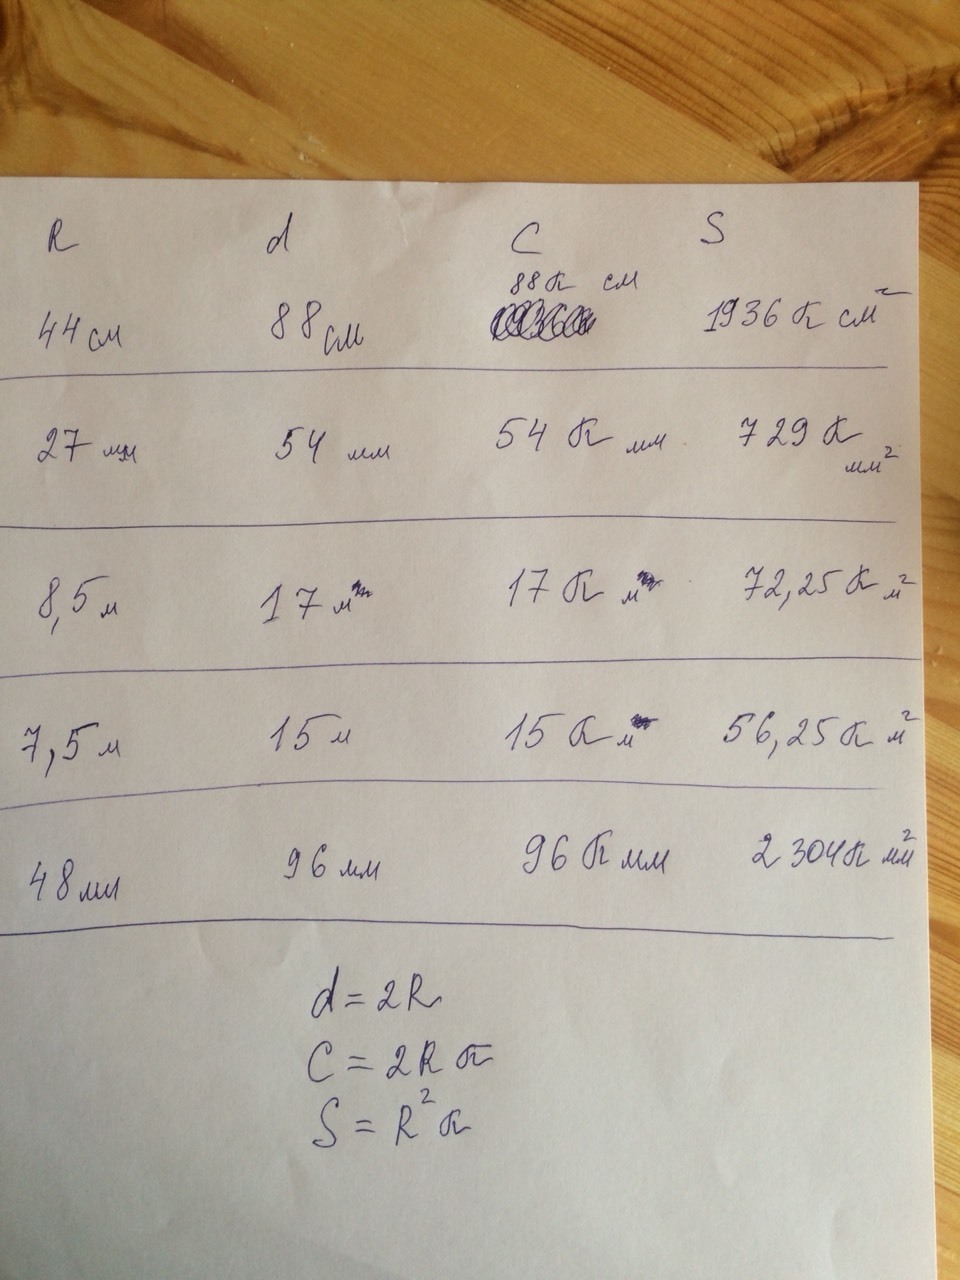 R d C S
44 см 88 см 88π см 1936π см²
27 мм 54 мм 54π мм 729π мм²
8,5 м 17 м 17π м 72,25π м²
7,5 м 15 м 15π м 56,25π м²
48 мм 96 мм 96π мм 2304π мм²
d = 2R
C = 2Rπ
S = R²π